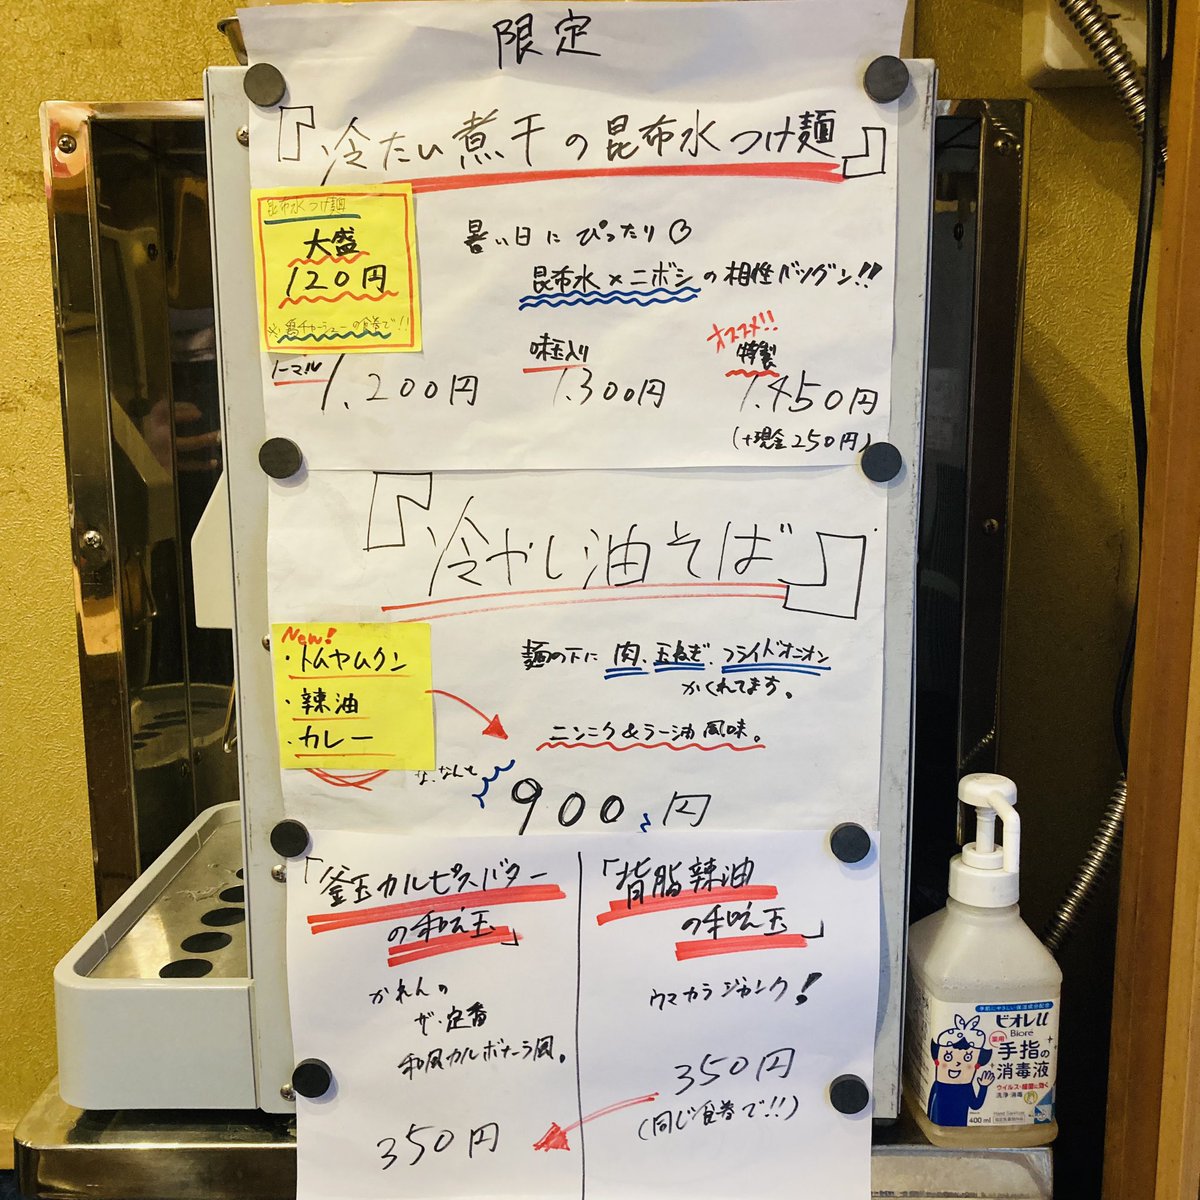 限定
『冷たい煮干の昆布水つけ麺』
昆布水つけ麺
大盛
120円
暑い日にぴったり
昆布水×ニボシの相性バツグン!!
ノーマル
1.200円
味玉入り
1.300円
オススメ!!
特製
1.450円
(+現金250円)
『冷やし油そば』
New!
・トムヤムクン
・辣油
・カレー
麺の下に肉、玉ねぎ、フライドオニオン
かくれてます。
ニンニク&ラー油風味。
な、なんと
900円
「釜玉カルピスバター
の和え玉」
かれんの
ザ・定番
和風カルボナーラ風。
350円
「背脂辣油
の和え玉」
ウマカラジャンク!
350円
(同じ食券で!!)
手肌にやさしい保湿成分配合
ビオレu
Bioré
薬用
手指の
消毒液
ウイルス・細菌に効く
洗浄・消毒
400ml